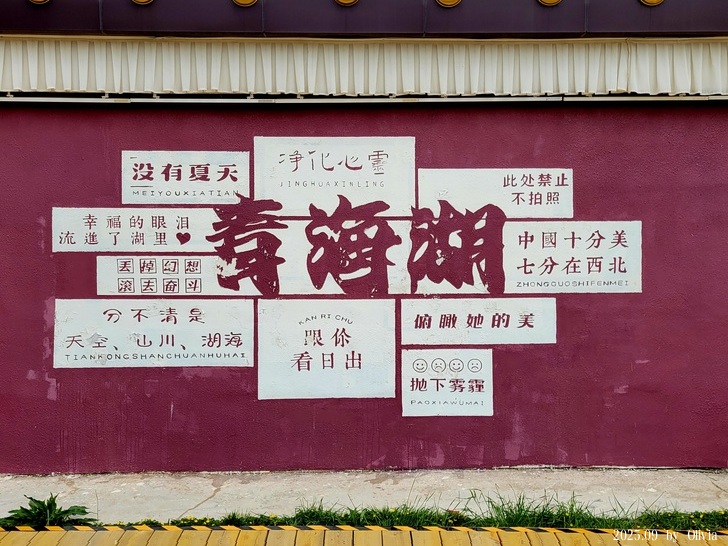 没有夏天
MEIYOUXIATIAN
净化心靈
JINGHUAXINLING
此处禁止
不拍照
幸福的眼泪
流進了湖里♥
青海湖
中國十分美
七分在西北
ZHONGGUOSHIFENMEI
丢掉幻想
滚去奋斗
分不清是
天空、山川、湖海
TIANKONGSHANCHUANHUHAI
KAN RI CHU
跟伱
看日出
俯瞰她的美
抛下雾霾
PAOXIAWUMAI
2025.09 by Olivia